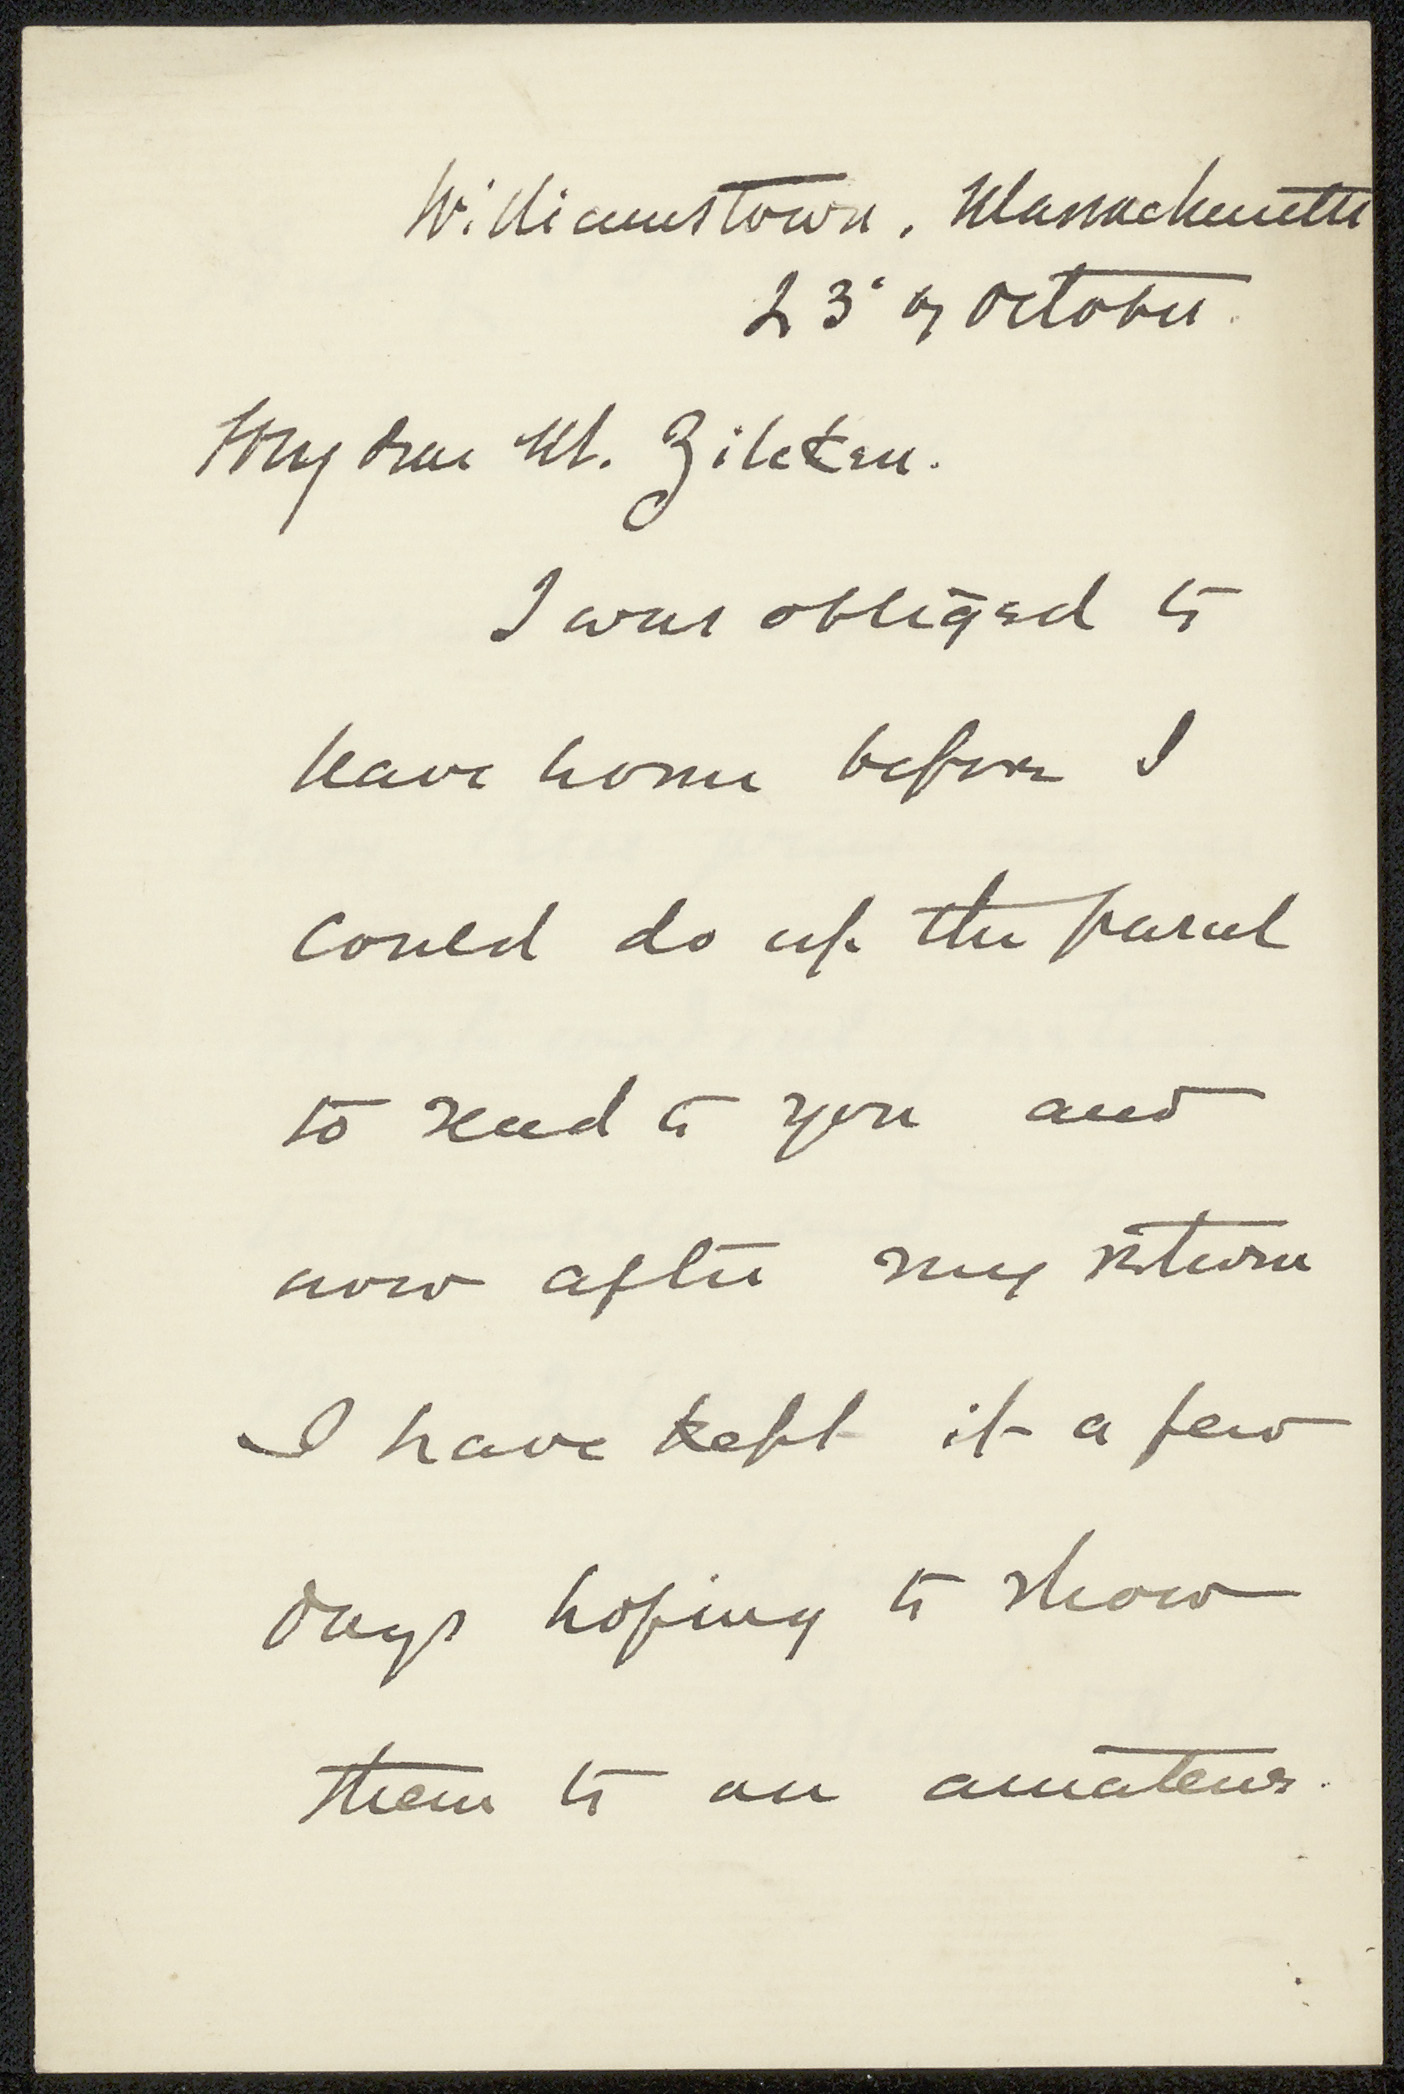 Williamstown, Massachusetts
23d of October.
My dear Mr. Zilcken.
I was obliged to
leave home before I
could do up the parcel
to send to you and
now after my return
I have kept it a few
days hoping to show
them to an amateur.